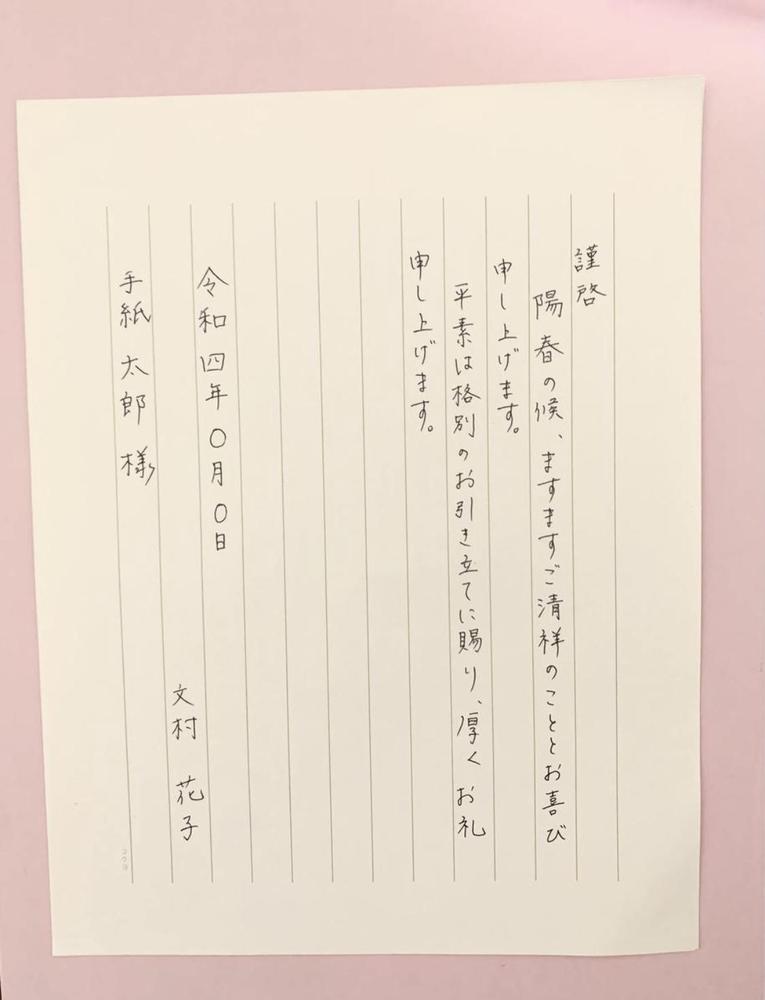 謹啓
陽春の候、ますますご清祥のこととお喜び
申し上げます。
平素は格別のお引き立てに賜り、厚くお礼
申し上げます。
令和四年〇月〇日
文村 花子
手紙 太郎 様